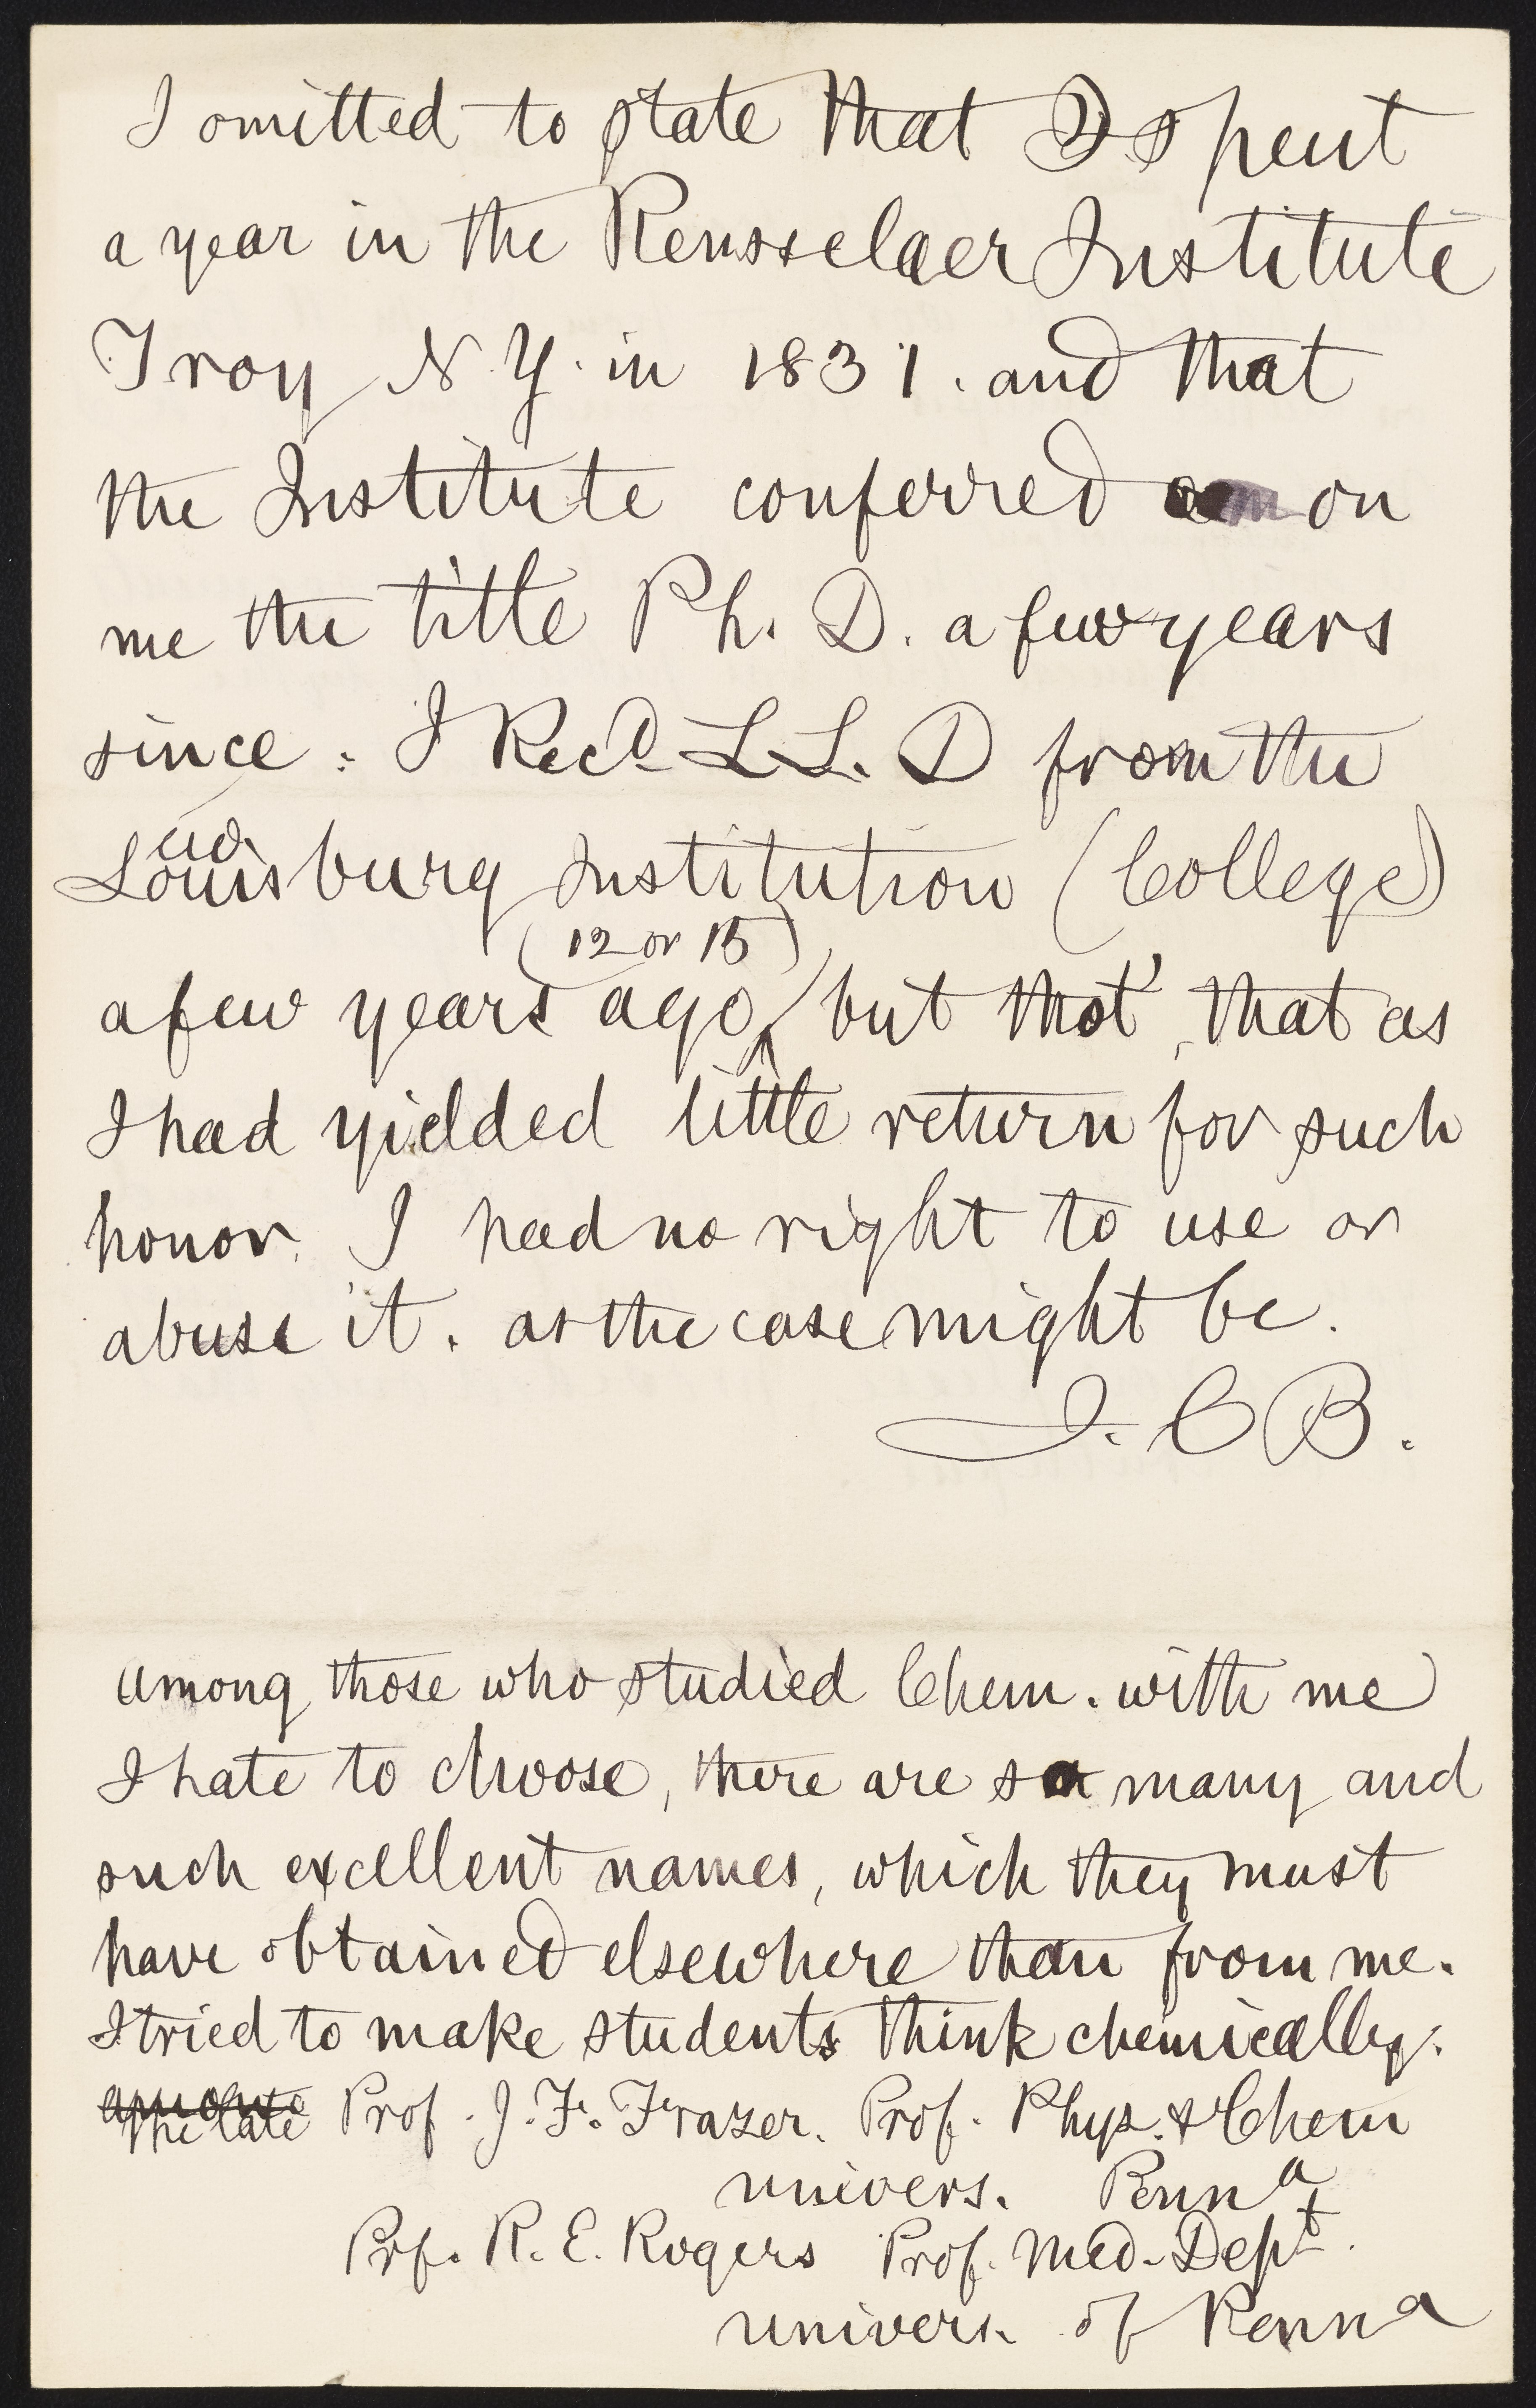 I omitted to state that I spent
a year in the Rensselaer Institute
Troy N Y. in 1831. and that
the Institute conferred on
me the title Ph. D. a few years
since : I Recd L L. D from the
Louisburg Institution (College)
(12 or 15)
a few years ago, but thot', that as
I had yielded little return for such
honor. I had no right to use or
abuse it. as the case might be.
J. C B.
Among those who studied Chem. with me
I hate to choose, there are so many and
such excellent names, which they must
have obtained elsewhere than from me.
I tried to make students think chemically.
The late Prof. J. F. Frazer. Prof. Phys. & Chem
univers. Penna
Prf. R. E. Rogers Prof. Med. Dept.
univers. of Penna